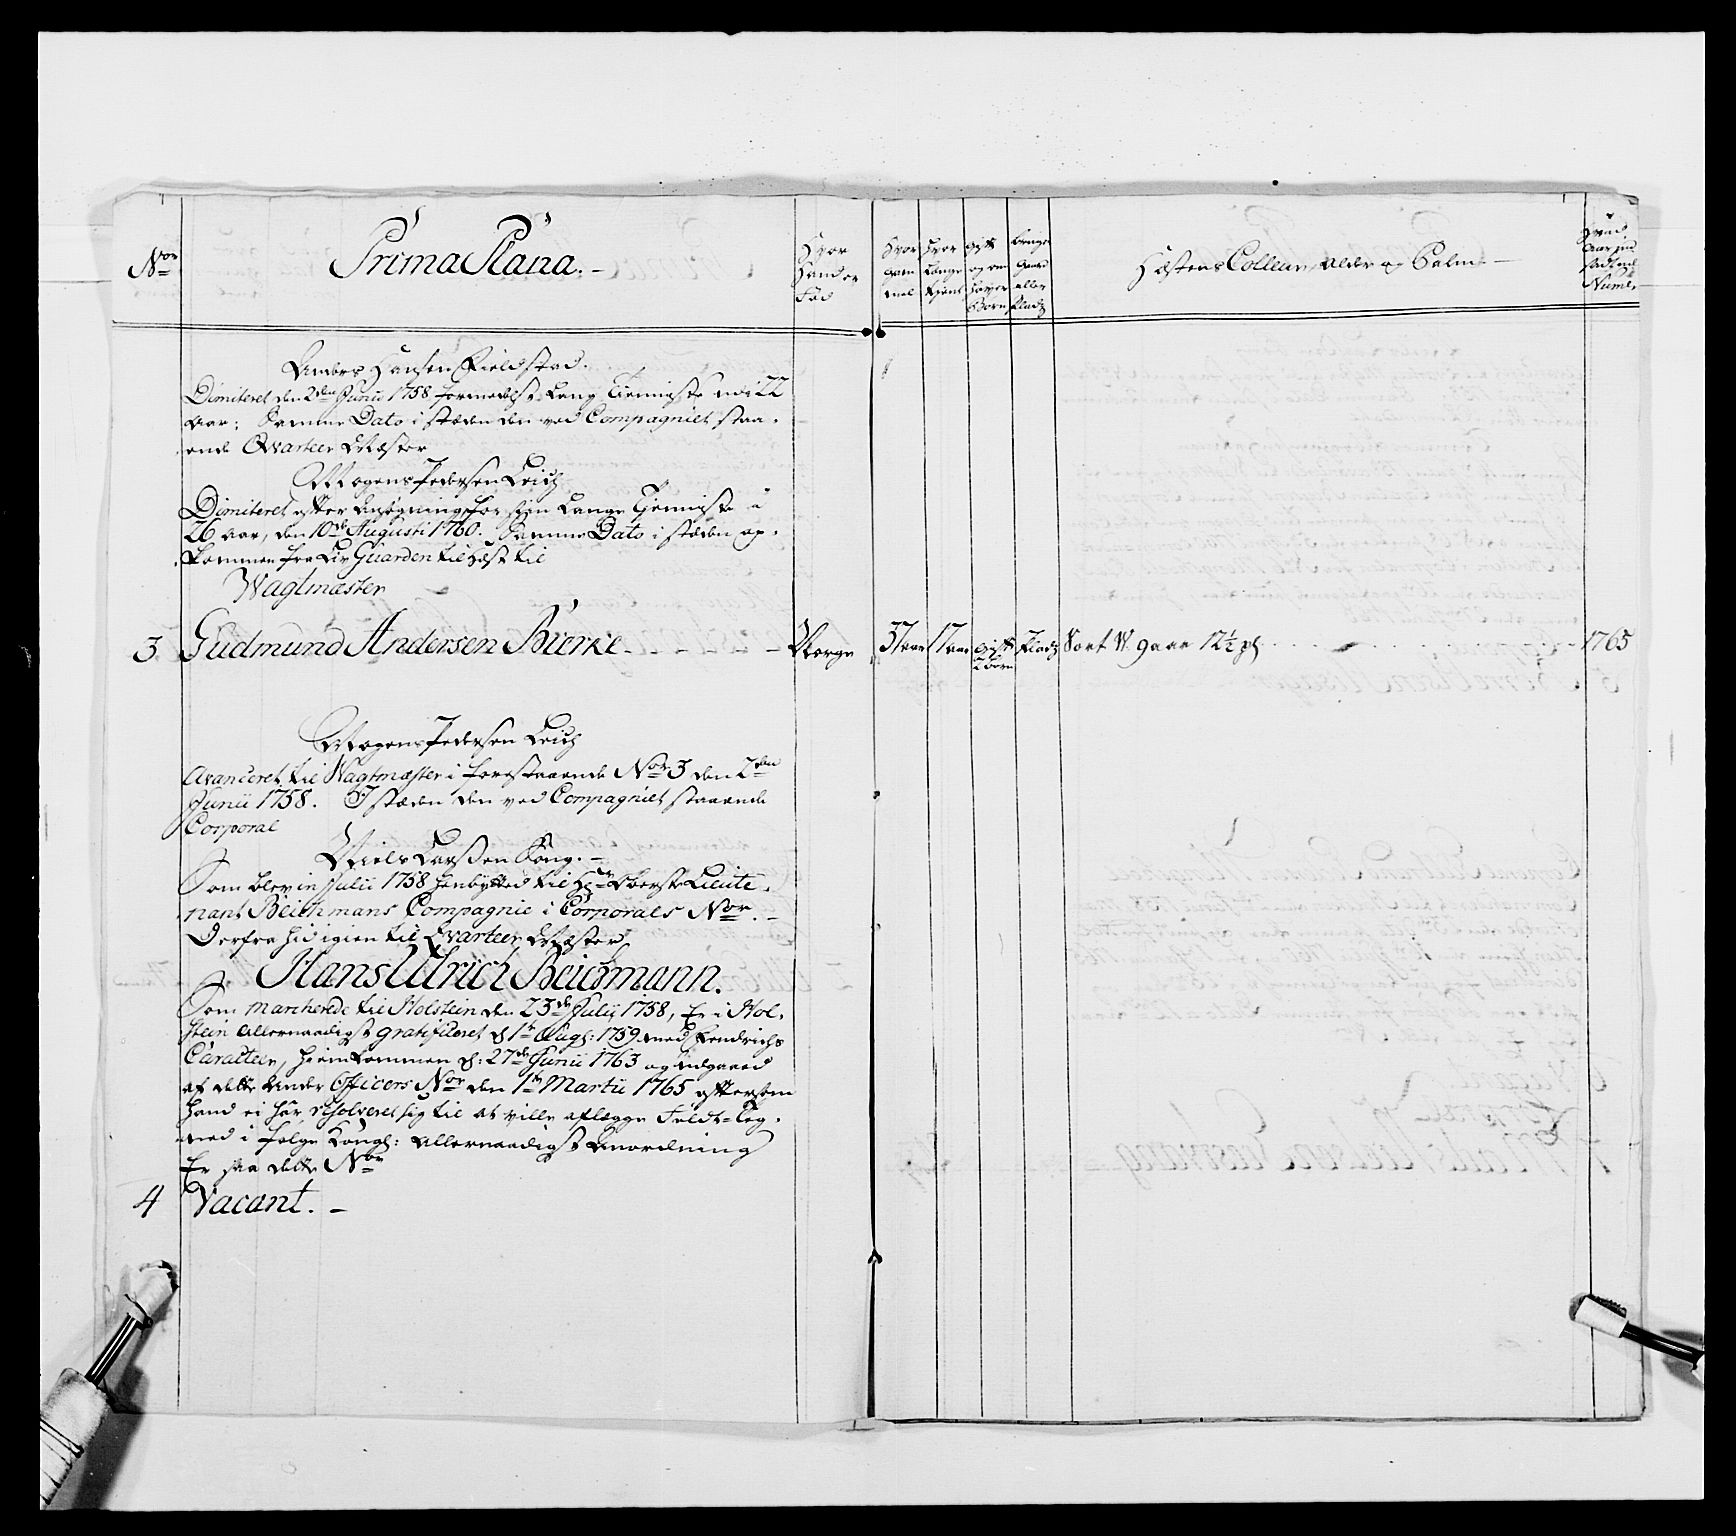 Nor
Prima Plana. –
Hvor
Hand er
Fød
Hvor
gam
mel
Hvor
Længe
tient
gift
og om
haver
Børn
Bruger
gaard
eller
Pladz
Hæstens Colleur, Alder og Palm –
Hvad
Aar ind
Anders Hansen Fieldstad.
Dimiteret den 2den Junii 1758 formedelst Lang Tienniste udi 22
Aar; Samme Dato i stæden den ved Compagniet staa-
ende Qvarteer Mæster
Mogens Pedersen Leich
Dimiteret efter Ansøgning for sien Lange Tienniste i
26 aar, den 10de Augusti 1760. Samme Dato i stæden op-
kommen fra Liv Guarden til Hæst til
Wagtmæster
3 Gudmund Andersen Bierke – Norge 37 aar 17 aar gift 2 børn Pladz Sort W. 9 aar 12½ pl 1765
Mogens Pedersen Leich
Avanceret til Wagtmæster i forestaaende Nor 3 den 2den
Junii 1758. I stæden den ved Compagniet staaende
Corporal
Niels Larssen Kong. –
Som blev in Julii 1758 henbytted til Hr Oberste Lieute-
nant Beichmans Compagnie i Corporals Nor. –
Derfra hid igien til Qvarteer Mæster
Hans Ulrich Beichmann.
Som marcherede til Holstein den 23de Julii 1758, Er i Hol-
stein allernaadigst gratificeret d 1te Augs: 1759 med Fendrichs
Caracteer, hiemkommen d: 27de Junii 1763 og udgaaed
af dette Under Officers Nor den 1te Martii 1765 eftersom
Hand ei har resolveret sig til at ville aflægge Feldt-Teg-
ned i følge Kongl: allernaadigst Anordning
Er saa dette Nor
4 Vacant. –